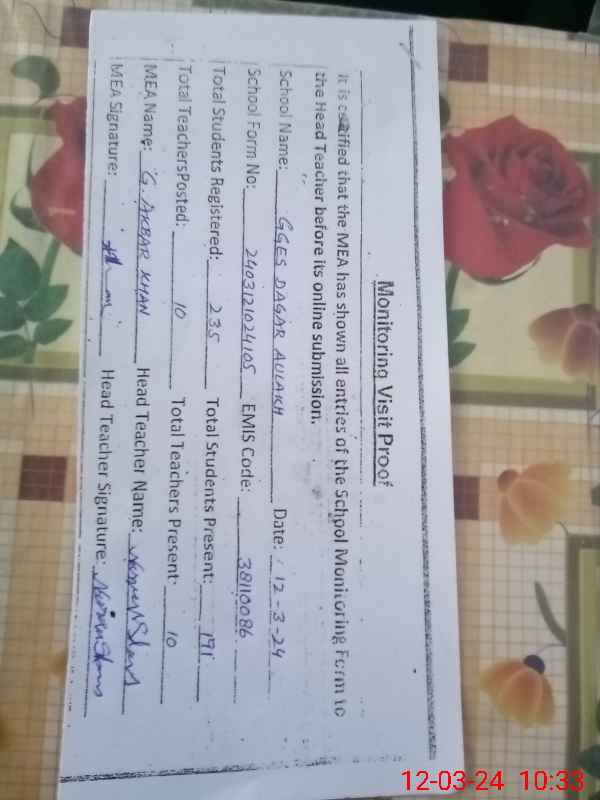 Monitoring Visit Proof
It is certified that the MEA has shown all entries of the School Monitoring Form to
the Head Teacher before its online submission.
School Name: GGES DAGAR AULAKH Date: 12-3-24
School Form No: 2403121024105 EMIS Code: 38110086
Total Students Registered: 235 Total Students Present: 191
Total TeachersPosted: 10 Total Teachers Present: 10
MEA Name: G. AKBAR KHAN Head Teacher Name:
MEA Signature: Head Teacher Signature:
12-03-24 10:33